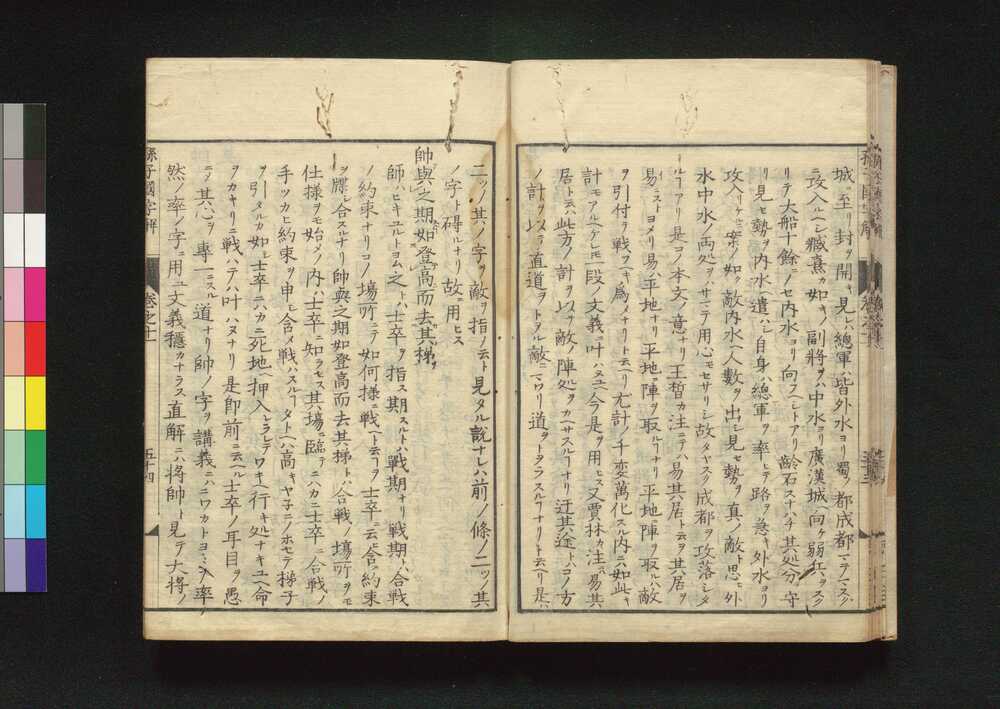 城ニ至リ封ヲ開キ見レハ總軍ハ皆外水ヨリ蜀ノ都成都ニテススク
ニ攻入ルヘシ臧熹カ如キノ副將ヲハ中水ヨリ廣漢城ニ向ケ弱兵ヲススク
リテ大船十餘ニノセ内水ヨリ向フヘシトアリ齡石スナハチ其処分ヲ守
リ見セ勢ヲ内水ヘ遣ハシ自身ハ總軍ヲ率ヒテ路ヲ急キ外水ヨリ
攻入リケレハ案ノ如ク敵内水ヘ人數ヲ出シ見セ勢ヲ真ノ敵ト思ヒ外
水中水ノ両処ヲハサノミ用心モセサリシ故タヤスク成都ヲ攻落シタ
ルヿアリ是コノ本文ノ意ナリ王晳カ注ニテハ易其居ト云ヲ其居ヲ
易ニストヨメリ易ハ平地ナリ平地ニ陣ヲ取ルナリ平地ニ陣取ルハ敵
ヲ引付ケ戰フヘキ為メナリト云ヘリ尤計ノ千変萬化スル内ニハ如此キ
計モアルヘケレモ一段ノ文義ニ叶ハヌユヘ今是ヲ用ヒス又賈林カ注ニハ易其
居トハ此方ノ計ヲ以テ敵ノ陣処ヲカヘサスルヿナリ迂其途トハコノ方
ノ計ヲ以テ直道ヲトヲル敵ニマワリ道ヲトヲラスルヿナリト云ヘリ是
二ツノ其ノ字ヲ敵ヲ指ノ云ト見タル説ナレハ前ノ條ノ二ツノ其
ノ字ト碍ルナリ故ニ用ヒス
帥與之期如登高而去其梯
師ハヒキユルトヨム之トハ士卒ヲ指ス期スルトハ戰期ナリ戰期トハ合戰
ノ約束ナリコノ塲所ニテ如何樣ニ戰ヘト云フヿヲ士卒ニ云ヒ含メ約束
ヲ牒シ合スルナリ帥與之期如登高而去其梯トハ合戰ノ塲所ヲモ
仕様ヲモ始ヨリノ内ハ士卒ニ知ラセス其塲ニ臨テニハカニ士卒ニ合戰ノ
手ツカヒ約束ヲ申シ含メ戰ハスルヿタトヘハ高キヤ子ニノホセテ梯子
ヲ引メルカ如シ士卒ニハカニ死地ヘ押入レラレテワキヘ行キ処ナキユヘ命
ヲカキリニ戰ハテハ叶ハヌナリ是即前ニ云ヘル士卒ノ耳目ヲ愚
ニシ其心ヲ專一ニスル道ナリ帥ノ字ヲ講義ニハニワカトヨミシハ率
然ノ率ノ字ニ用ユ文義穩カナラス直解ニハ將帥ト見テ大將ノ
孫子國字解
卷之十一
五十四